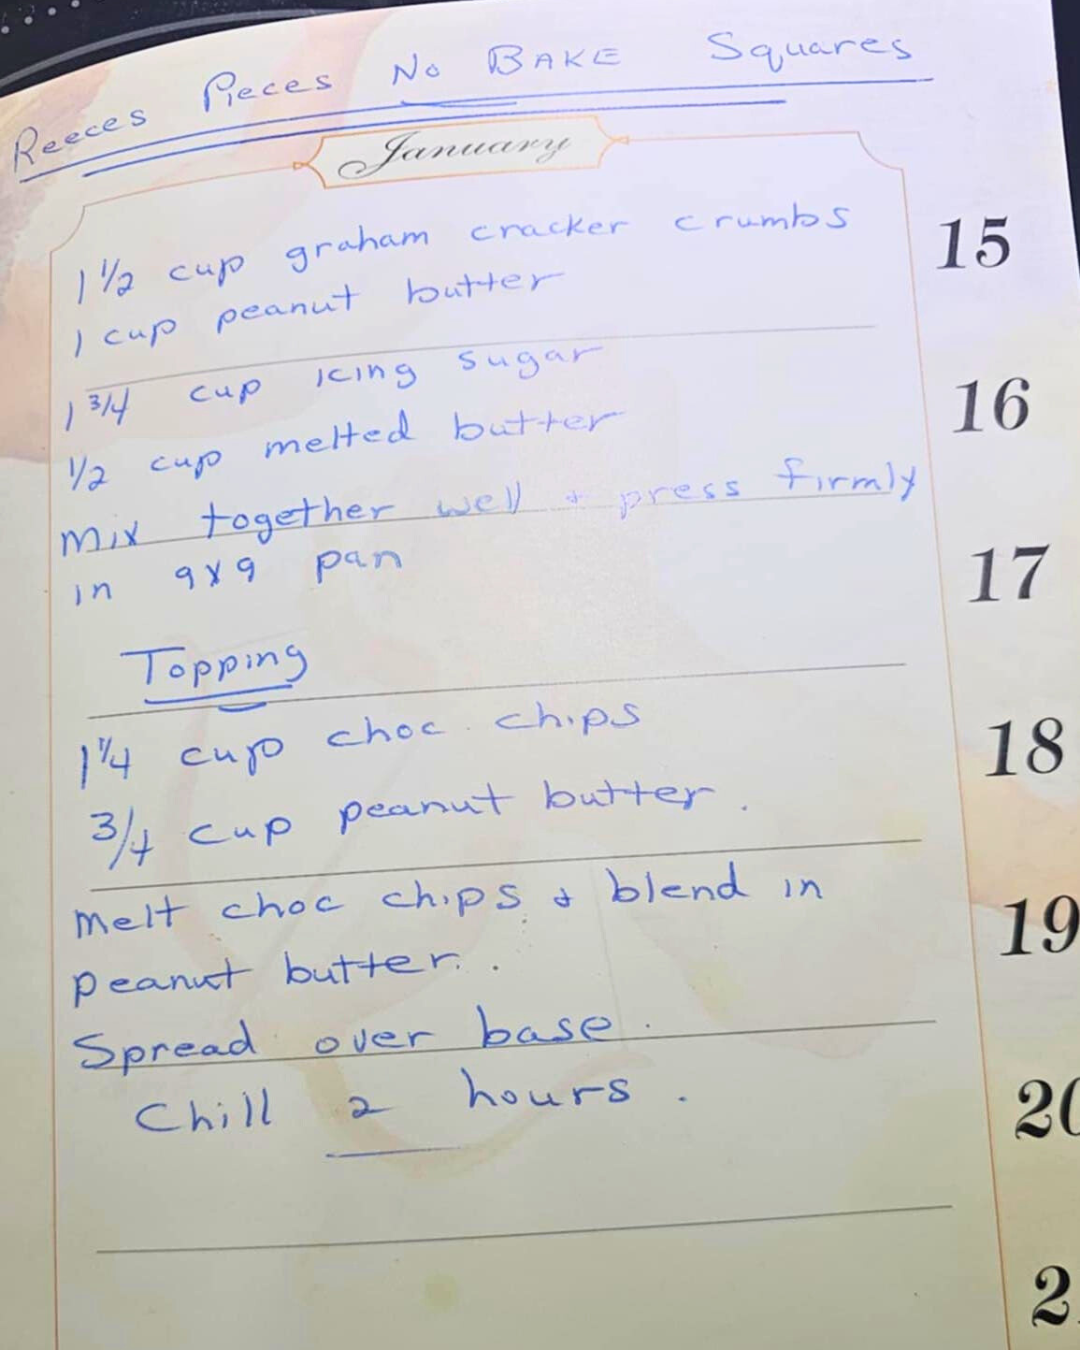 Reeces Pieces No BAKE Squares
January
1 1/2 cup graham cracker crumbs
15
1 cup peanut butter
1 3/4 cup icing sugar
16
1/2 cup melted butter
Mix together well + press firmly
in 9x9 pan
17
Topping
1 1/4 cup choc. chips
18
3/4 cup peanut butter.
Melt choc chips + blend in
19
peanut butter.
Spread over base.
Chill 2 hours.
20
2